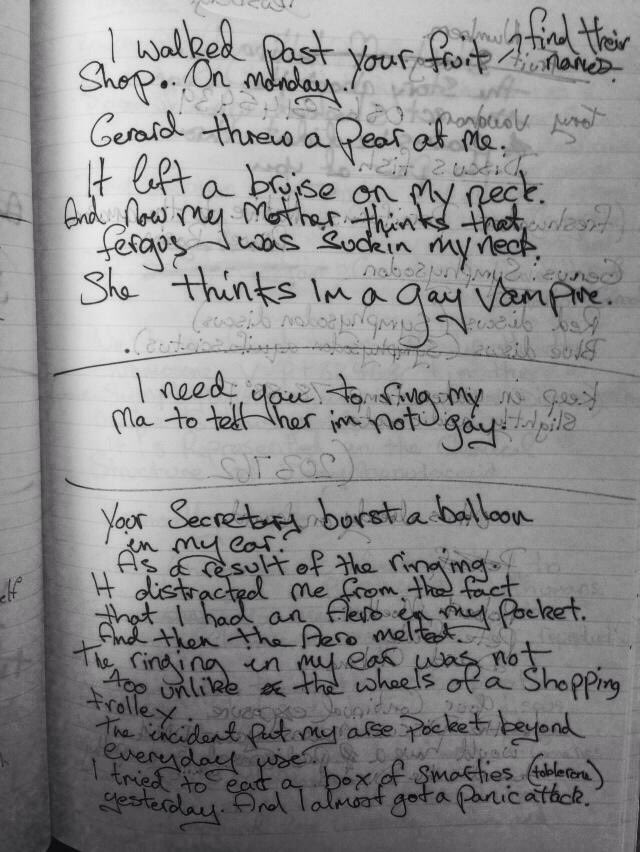 I walked past your fruit ^ find their names
Shop.. On monday.
Gerard threw a Pear at me.
It left a bruise on my neck.
And now my Mother thinks that
fergus was Suckin my neck.
She thinks Im a gay Vampire.
I need you to ring my
Ma to tell her im not gay.
Your Secretary burst a balloon
in my ear.
As a result of the ringing.
It distracted me from the fact
that I had an Aero in my Pocket.
And then the Aero melted.
The ringing in my ear was not
too unlike the wheels of a Shopping
trolley.
The incident put my arse Pocket beyond
everyday use.
I tried to eat a box of Smarties (toblerone)
yesterday. And I almost got a Panic attack.